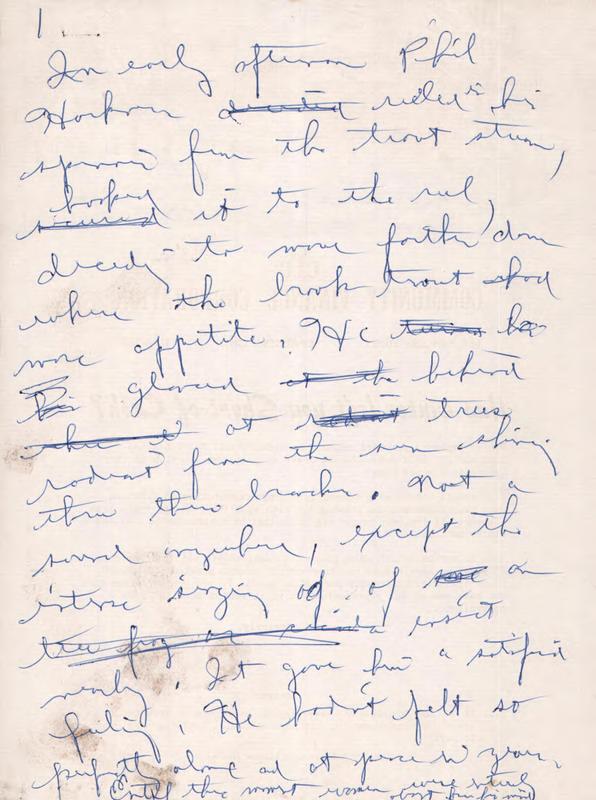 1
In early afternoon Phil
~~decided~~ his
spinner from the trout stream,
hooked
~~secured~~ it to the reel,
decidg to move farther down
where the brook trout shod
more appetite. He
glanced ~~at the~~ behind
at ~~radiant~~ trees
radiant from the sun shing
thru their branches. Not a
sound anywhere, except the
intense singing of of an
~~tree frog or cicada~~ insect
nearby. It gave him a satisfied
feeling. He hadn't felt so
perfectly alone ad at peace in years.
this moment women were
about him